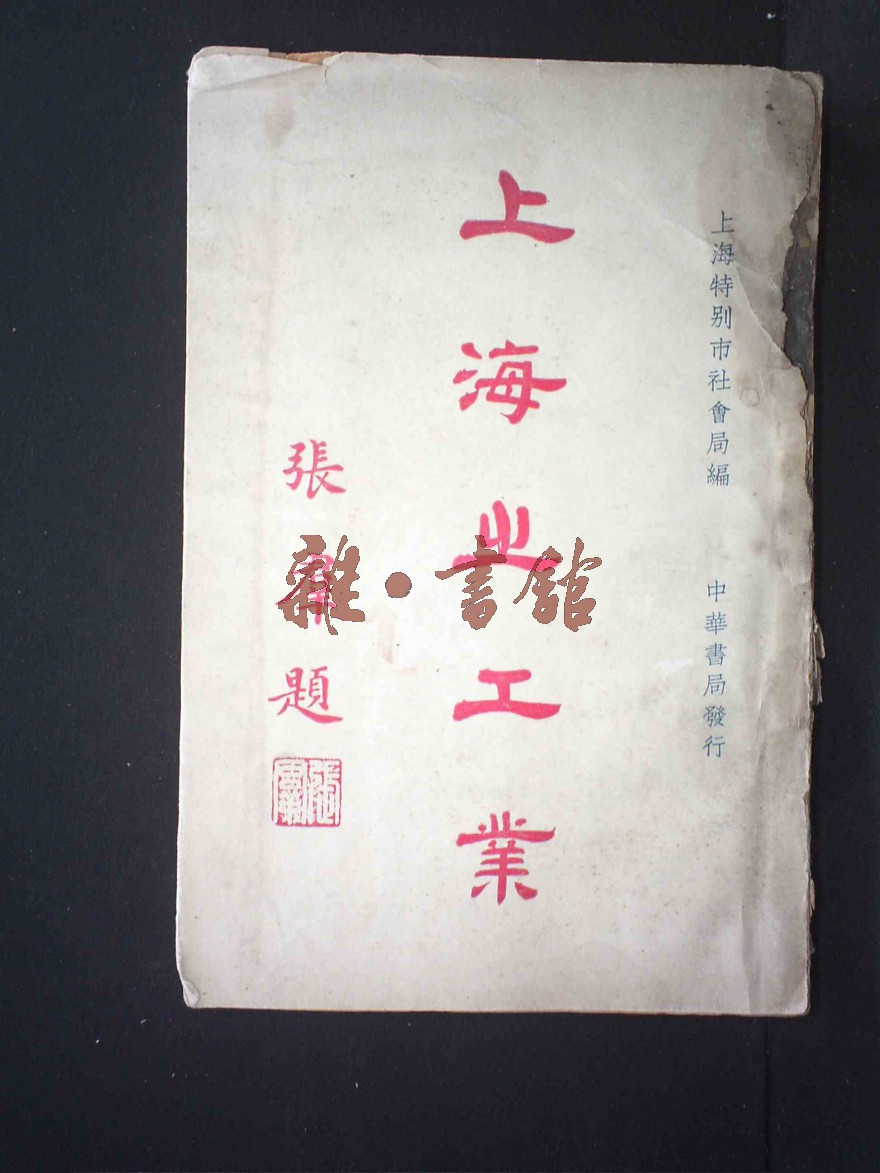 上海特别市社會局編　中華書局發行
上海之工業
張羣題
雜·書館